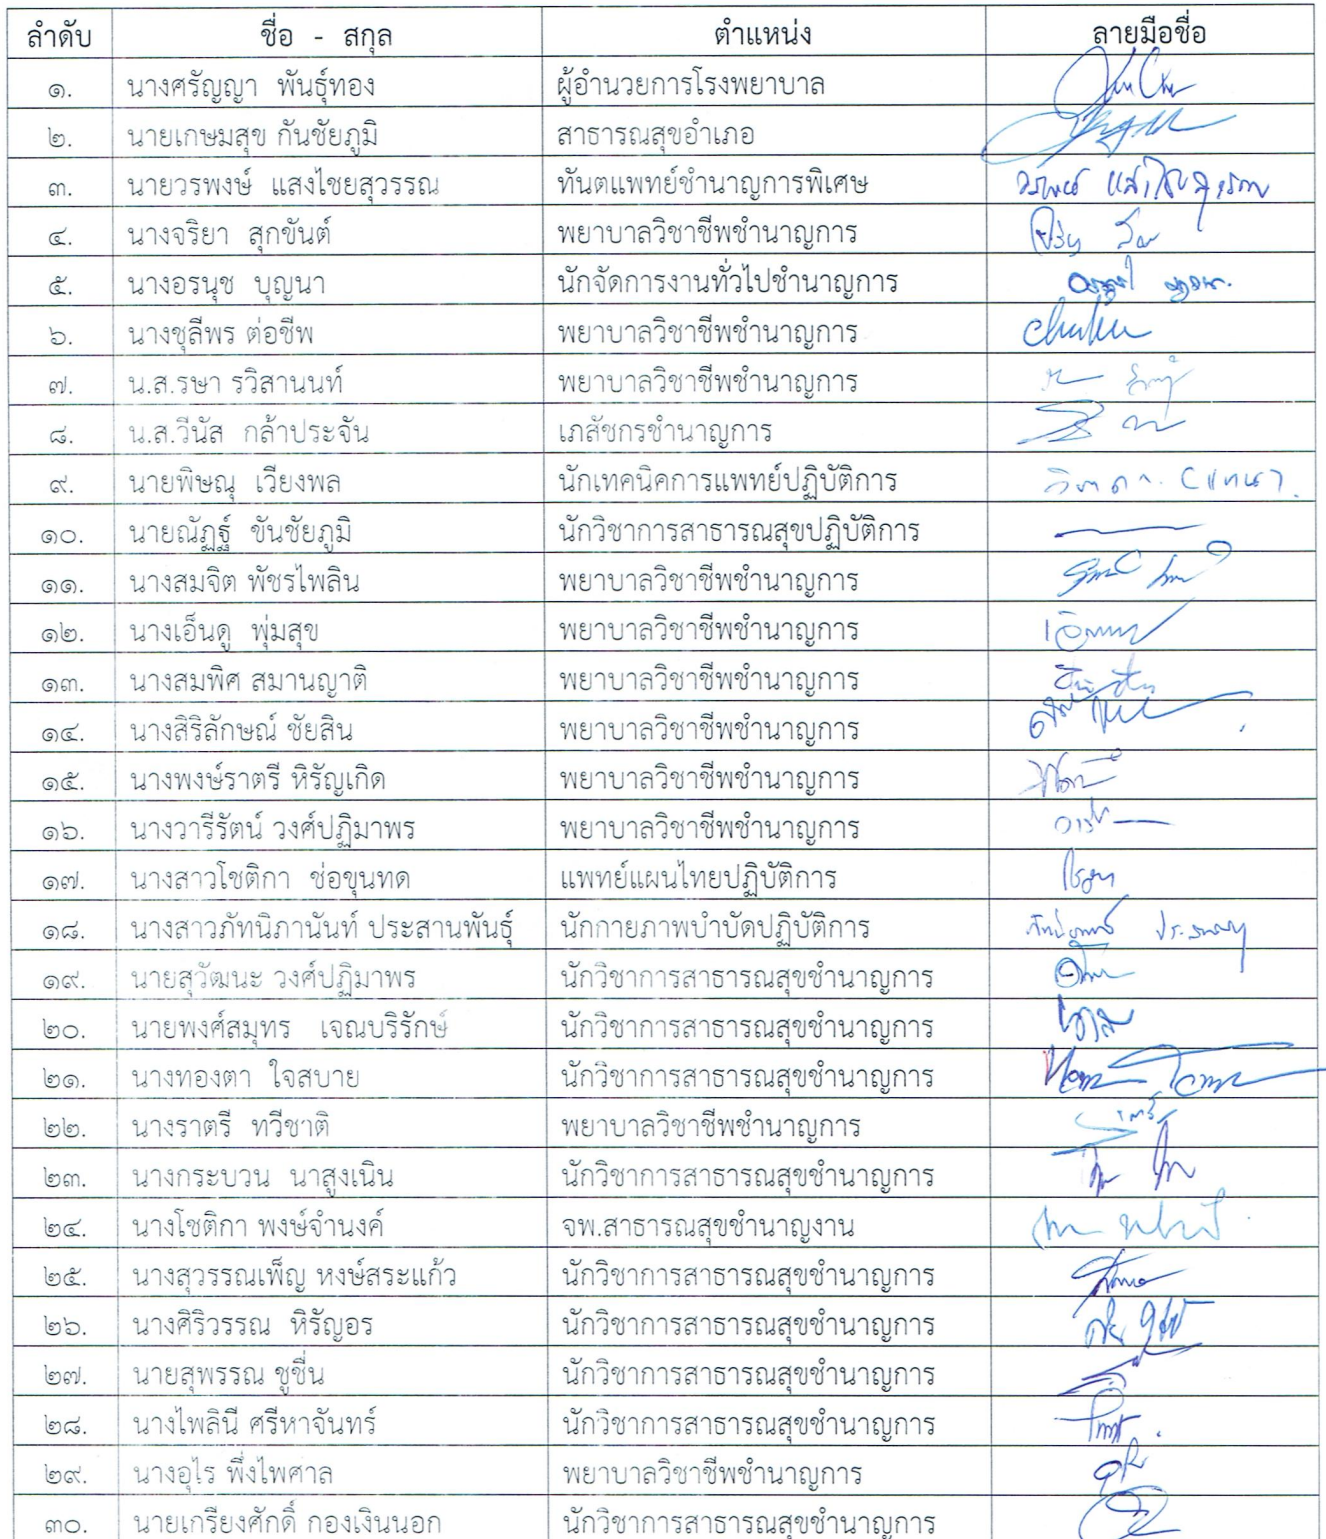 ลำดับ ชื่อ - สกุล ตำแหน่ง ลายมือชื่อ
๑. นางศรัญญา พันธุ์ทอง ผู้อำนวยการโรงพยาบาล
๒. นายเกษมสุข กันชัยภูมิ สาธารณสุขอำเภอ
๓. นายวรพงษ์ แสงไชยสุวรรณ ทันตแพทย์ชำนาญการพิเศษ
๔. นางจริยา สุกขันต์ พยาบาลวิชาชีพชำนาญการ
๕. นางอรนุช บุญนา นักจัดการงานทั่วไปชำนาญการ
๖. นางชุลีพร ต่อชีพ พยาบาลวิชาชีพชำนาญการ
๗. น.ส.รษา รวิสานนท์ พยาบาลวิชาชีพชำนาญการ
๘. น.ส.วีนัส กล้าประจัน เภสัชกรชำนาญการ
๙. นายพิษณุ เวียงพล นักเทคนิคการแพทย์ปฏิบัติการ
๑๐. นายณัฏฐ์ ขันชัยภูมิ นักวิชาการสาธารณสุขปฏิบัติการ
๑๑. นางสมจิต พัชรไพลิน พยาบาลวิชาชีพชำนาญการ
๑๒. นางเอ็นดู พุ่มสุข พยาบาลวิชาชีพชำนาญการ
๑๓. นางสมพิศ สมานญาติ พยาบาลวิชาชีพชำนาญการ
๑๔. นางสิริลักษณ์ ชัยสิน พยาบาลวิชาชีพชำนาญการ
๑๕. นางพงษ์ราตรี หิรัญเกิด พยาบาลวิชาชีพชำนาญการ
๑๖. นางวารีรัตน์ วงศ์ปฏิมาพร พยาบาลวิชาชีพชำนาญการ
๑๗. นางสาวโชติกา ช่อขุนทด แพทย์แผนไทยปฏิบัติการ
๑๘. นางสาวภัทนิภานันท์ ประสานพันธุ์ นักกายภาพบำบัดปฏิบัติการ
๑๙. นายสุวัฒนะ วงศ์ปฏิมาพร นักวิชาการสาธารณสุขชำนาญการ
๒๐. นายพงศ์สมุทร เจณบริรักษ์ นักวิชาการสาธารณสุขชำนาญการ
๒๑. นางทองตา ใจสบาย นักวิชาการสาธารณสุขชำนาญการ
๒๒. นางราตรี ทวีชาติ พยาบาลวิชาชีพชำนาญการ
๒๓. นางกระบวน นาสูงเนิน นักวิชาการสาธารณสุขชำนาญการ
๒๔. นางโชติกา พงษ์จำนงค์ จพ.สาธารณสุขชำนาญงาน
๒๕. นางสุวรรณเพ็ญ หงษ์สระแก้ว นักวิชาการสาธารณสุขชำนาญการ
๒๖. นางศิริวรรณ หิรัญอร นักวิชาการสาธารณสุขชำนาญการ
๒๗. นายสุพรรณ ชูชื่น นักวิชาการสาธารณสุขชำนาญการ
๒๘. นางไพลินี ศรีหาจันทร์ นักวิชาการสาธารณสุขชำนาญการ
๒๙. นางอุไร พึ่งไพศาล พยาบาลวิชาชีพชำนาญการ
๓๐. นายเกรียงศักดิ์ กองเงินนอก นักวิชาการสาธารณสุขชำนาญการ